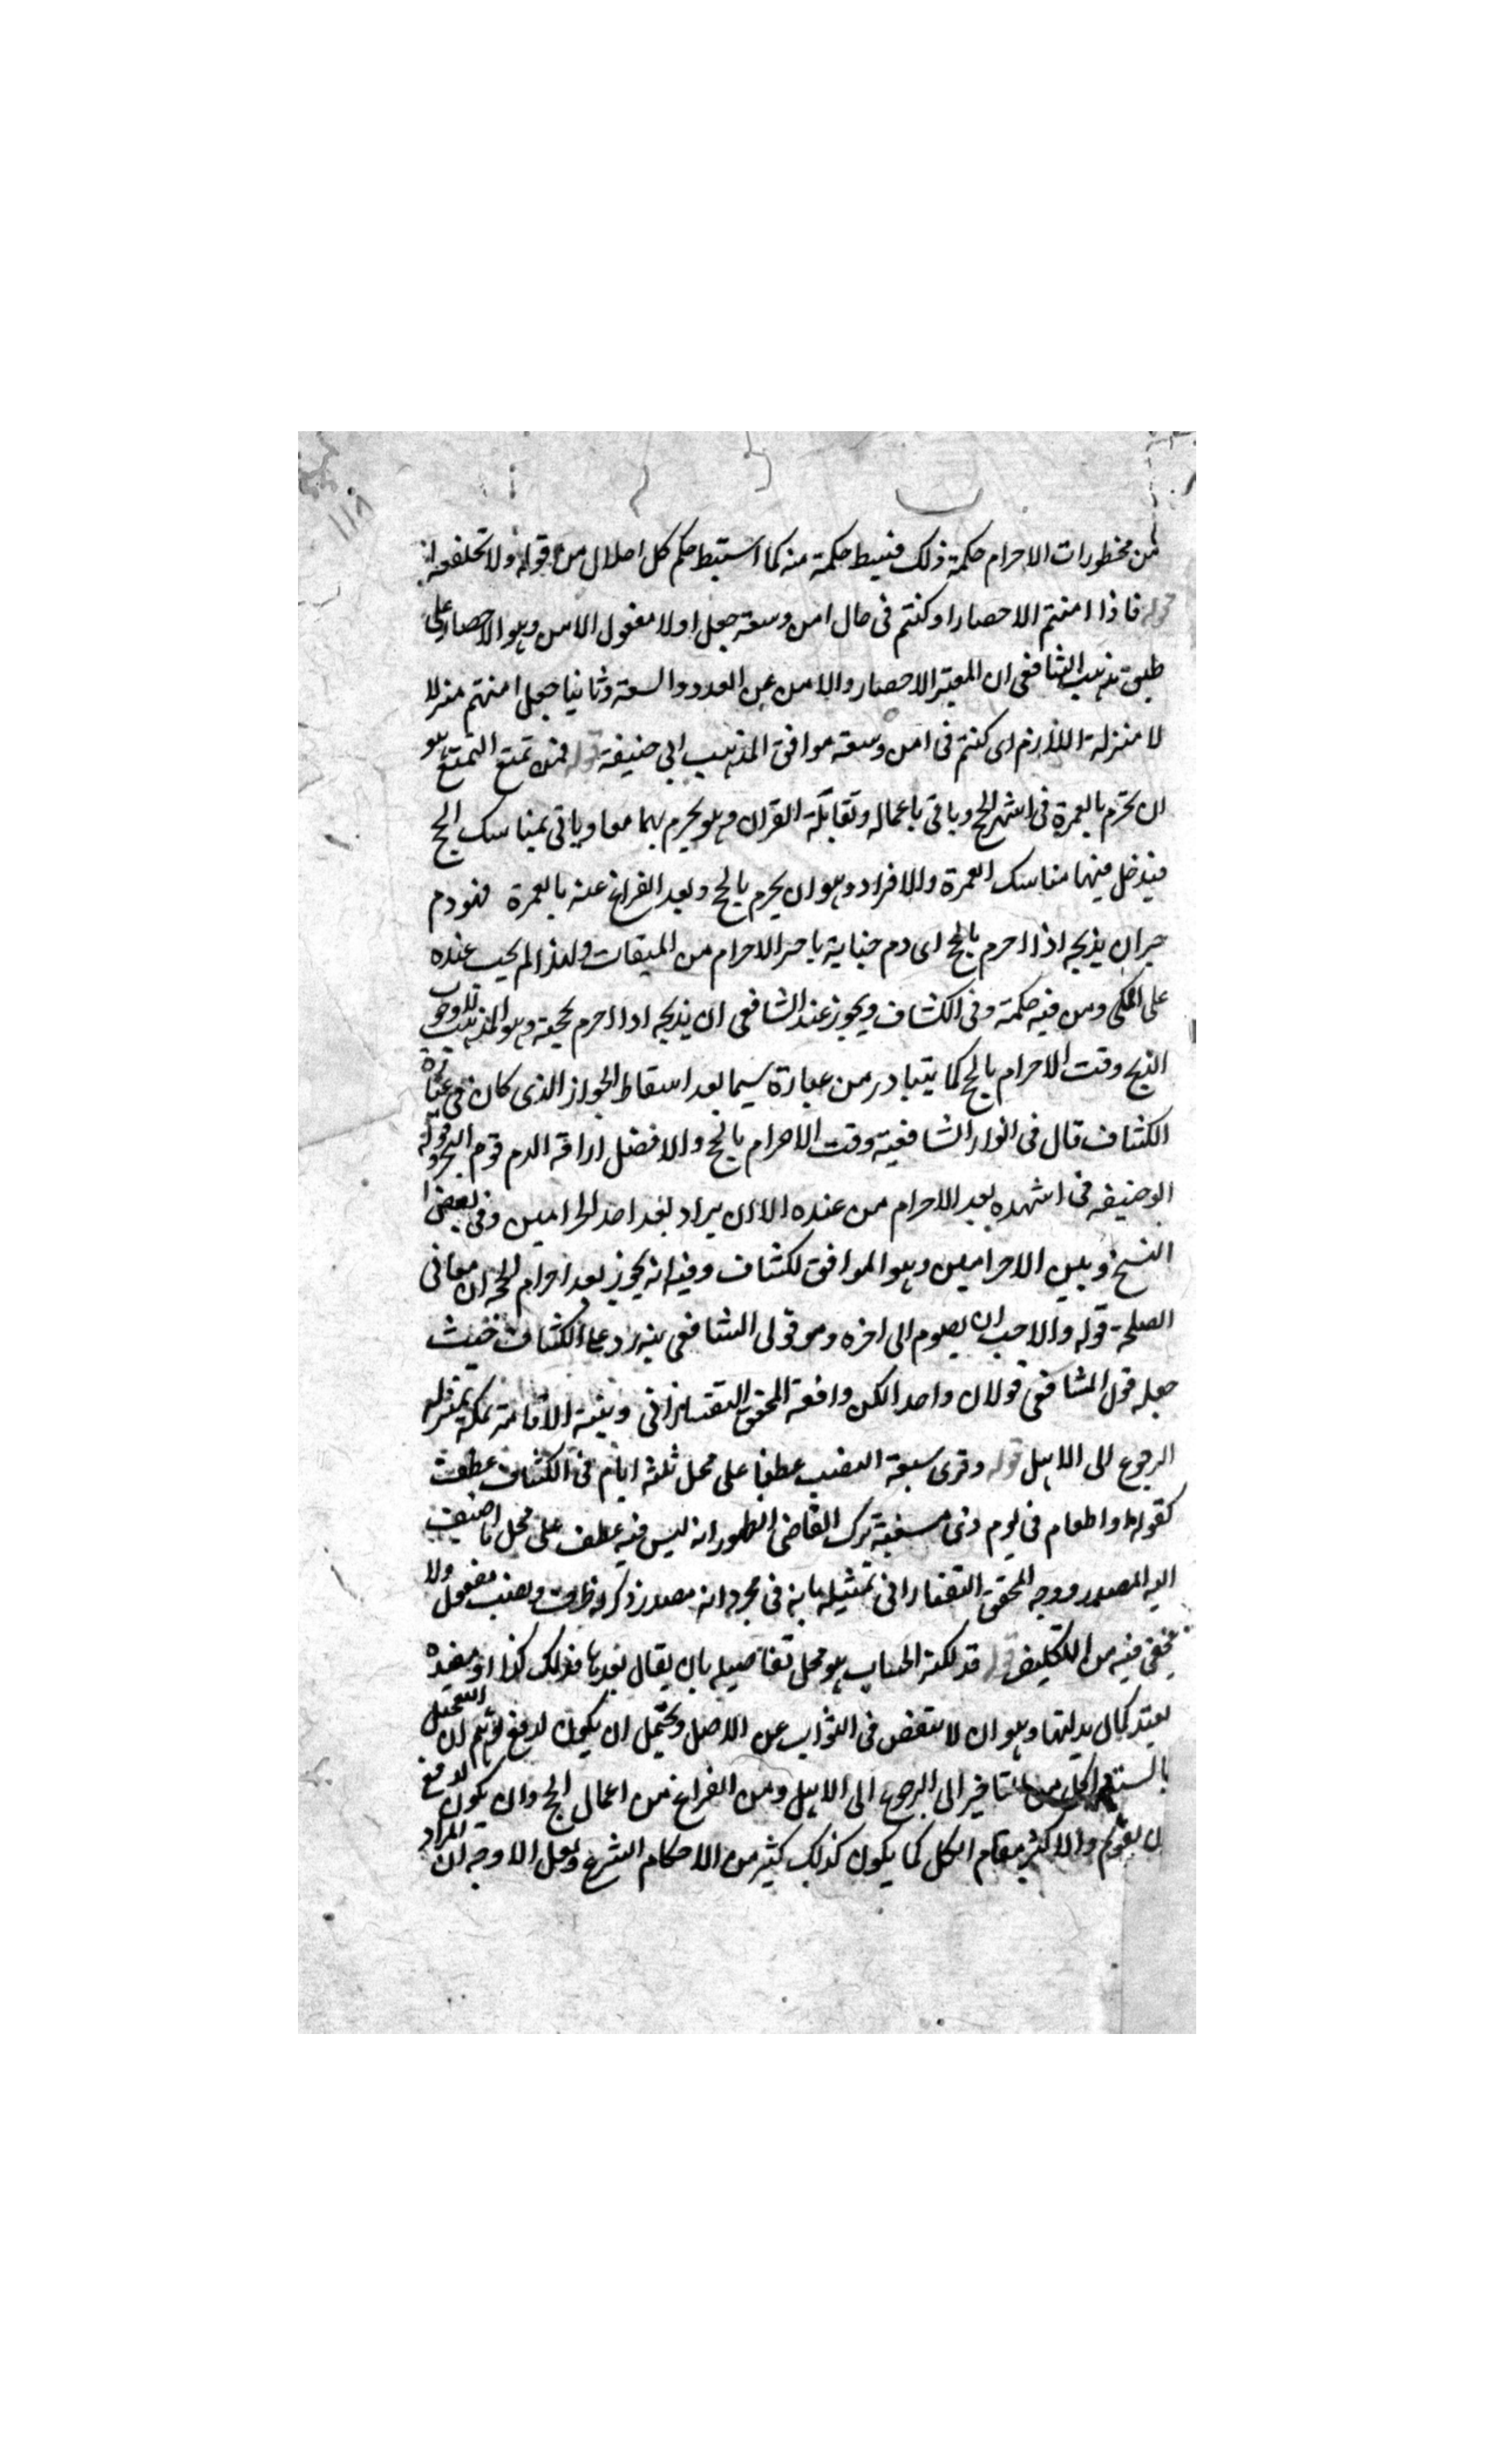 ١١٨
من محظورات الاحرام حكمة ذلك فنيط حكمة منه كما استنبط حكم كل احلال من قوله ولا تحلقوا
قوله فاذا امنتم الاحصار او كنتم فى حال امن وسعة جعل اولا مفعول الامن وهو الاحصار على
طبق مذهب الشافعى ان المعتبر الاحصار والامن عن العدو والسعة وثانيا جعل امنتم منزلا
لا منزلة اللازم اى كنتم فى امن وسعة موافق المذهب ابى حنيفة قوله فمن تمتع التمتع هو
ان يحرم بالعمرة فى اشهر الحج وياتى باعماله وتقابله القران وهو يحرم بهما معا وياتى بمناسك الحج
فيدخل فيها مناسك العمرة والافراد وهو ان يحرم بالحج وبعد الفراغ عنه بالعمرة فهو دم
جبران يذبحه اذا احرم بالحج اى دم جناية الاحرام من الميقات ولهذا لم يجب عنده
على المكى ومن فيه حكمة وفى الكشاف ويجوز عند الشافعى ان يذبحه اذا احرم بحجته وهو المذهب
الذبح وقت الاحرام بالحج كما يتبادر من عبارة سيما بعد اسقاط الجواز الذى كان فى عبارة
الكشاف قال فى انوار الشافعية وقت الاحرام بالحج والافضل اراقة الدم يوم النحر قوله
ابو حنيفه فى اشهده بعد الاحرام من عنده الا ان يراد بعد احد الحرامين وفى بعض
النسخ وبين الاحرامين وهو الموافق لكشاف وفيه انه يجوز بعد احرام الحج ان معانى
قوله والاحب ان يصوم الى اخره وهو قولى الشافعى رد على الكشاف حيث
جعله قول الشافعى قولان واحد الكن وافقه المحقق التفتازانى ونية الاقامة بمكة بمنزلة
الرجوع الى الاهل قوله وقرى سبعة النصب عطفا على محل ثلثه ايام فى الكشاف عطفت
كقوله او اطعام فى يوم ذى مسغبة ترك القاضى لظهور انه ليس فيه عطف على محل ما اضيف
اليه المصدر ووجه المحقق التفتازانى تمثيله بانه فى مجرد انه مصدر ذكر له ظرف ونصب مفعول ولا
يخفى فيه من التكليف قوله فذلكة الحساب هو مجمل تفاصيله بان يقال بعدها فذلك كذا
يعتد كمال بدليتها وهو ان لا ينقص فى الثواب عن الاصل ويحتمل ان يكون لدفع توهم ان التعجيل
التاخير الى الرجوع الى الاهل ومن الفراغ من اعمال الحج وان يكون لدفع
والاكثر بمقام الكل كما يكون كذلك كثير من الاحكام الشرع ولعل الاوجه ان المراد